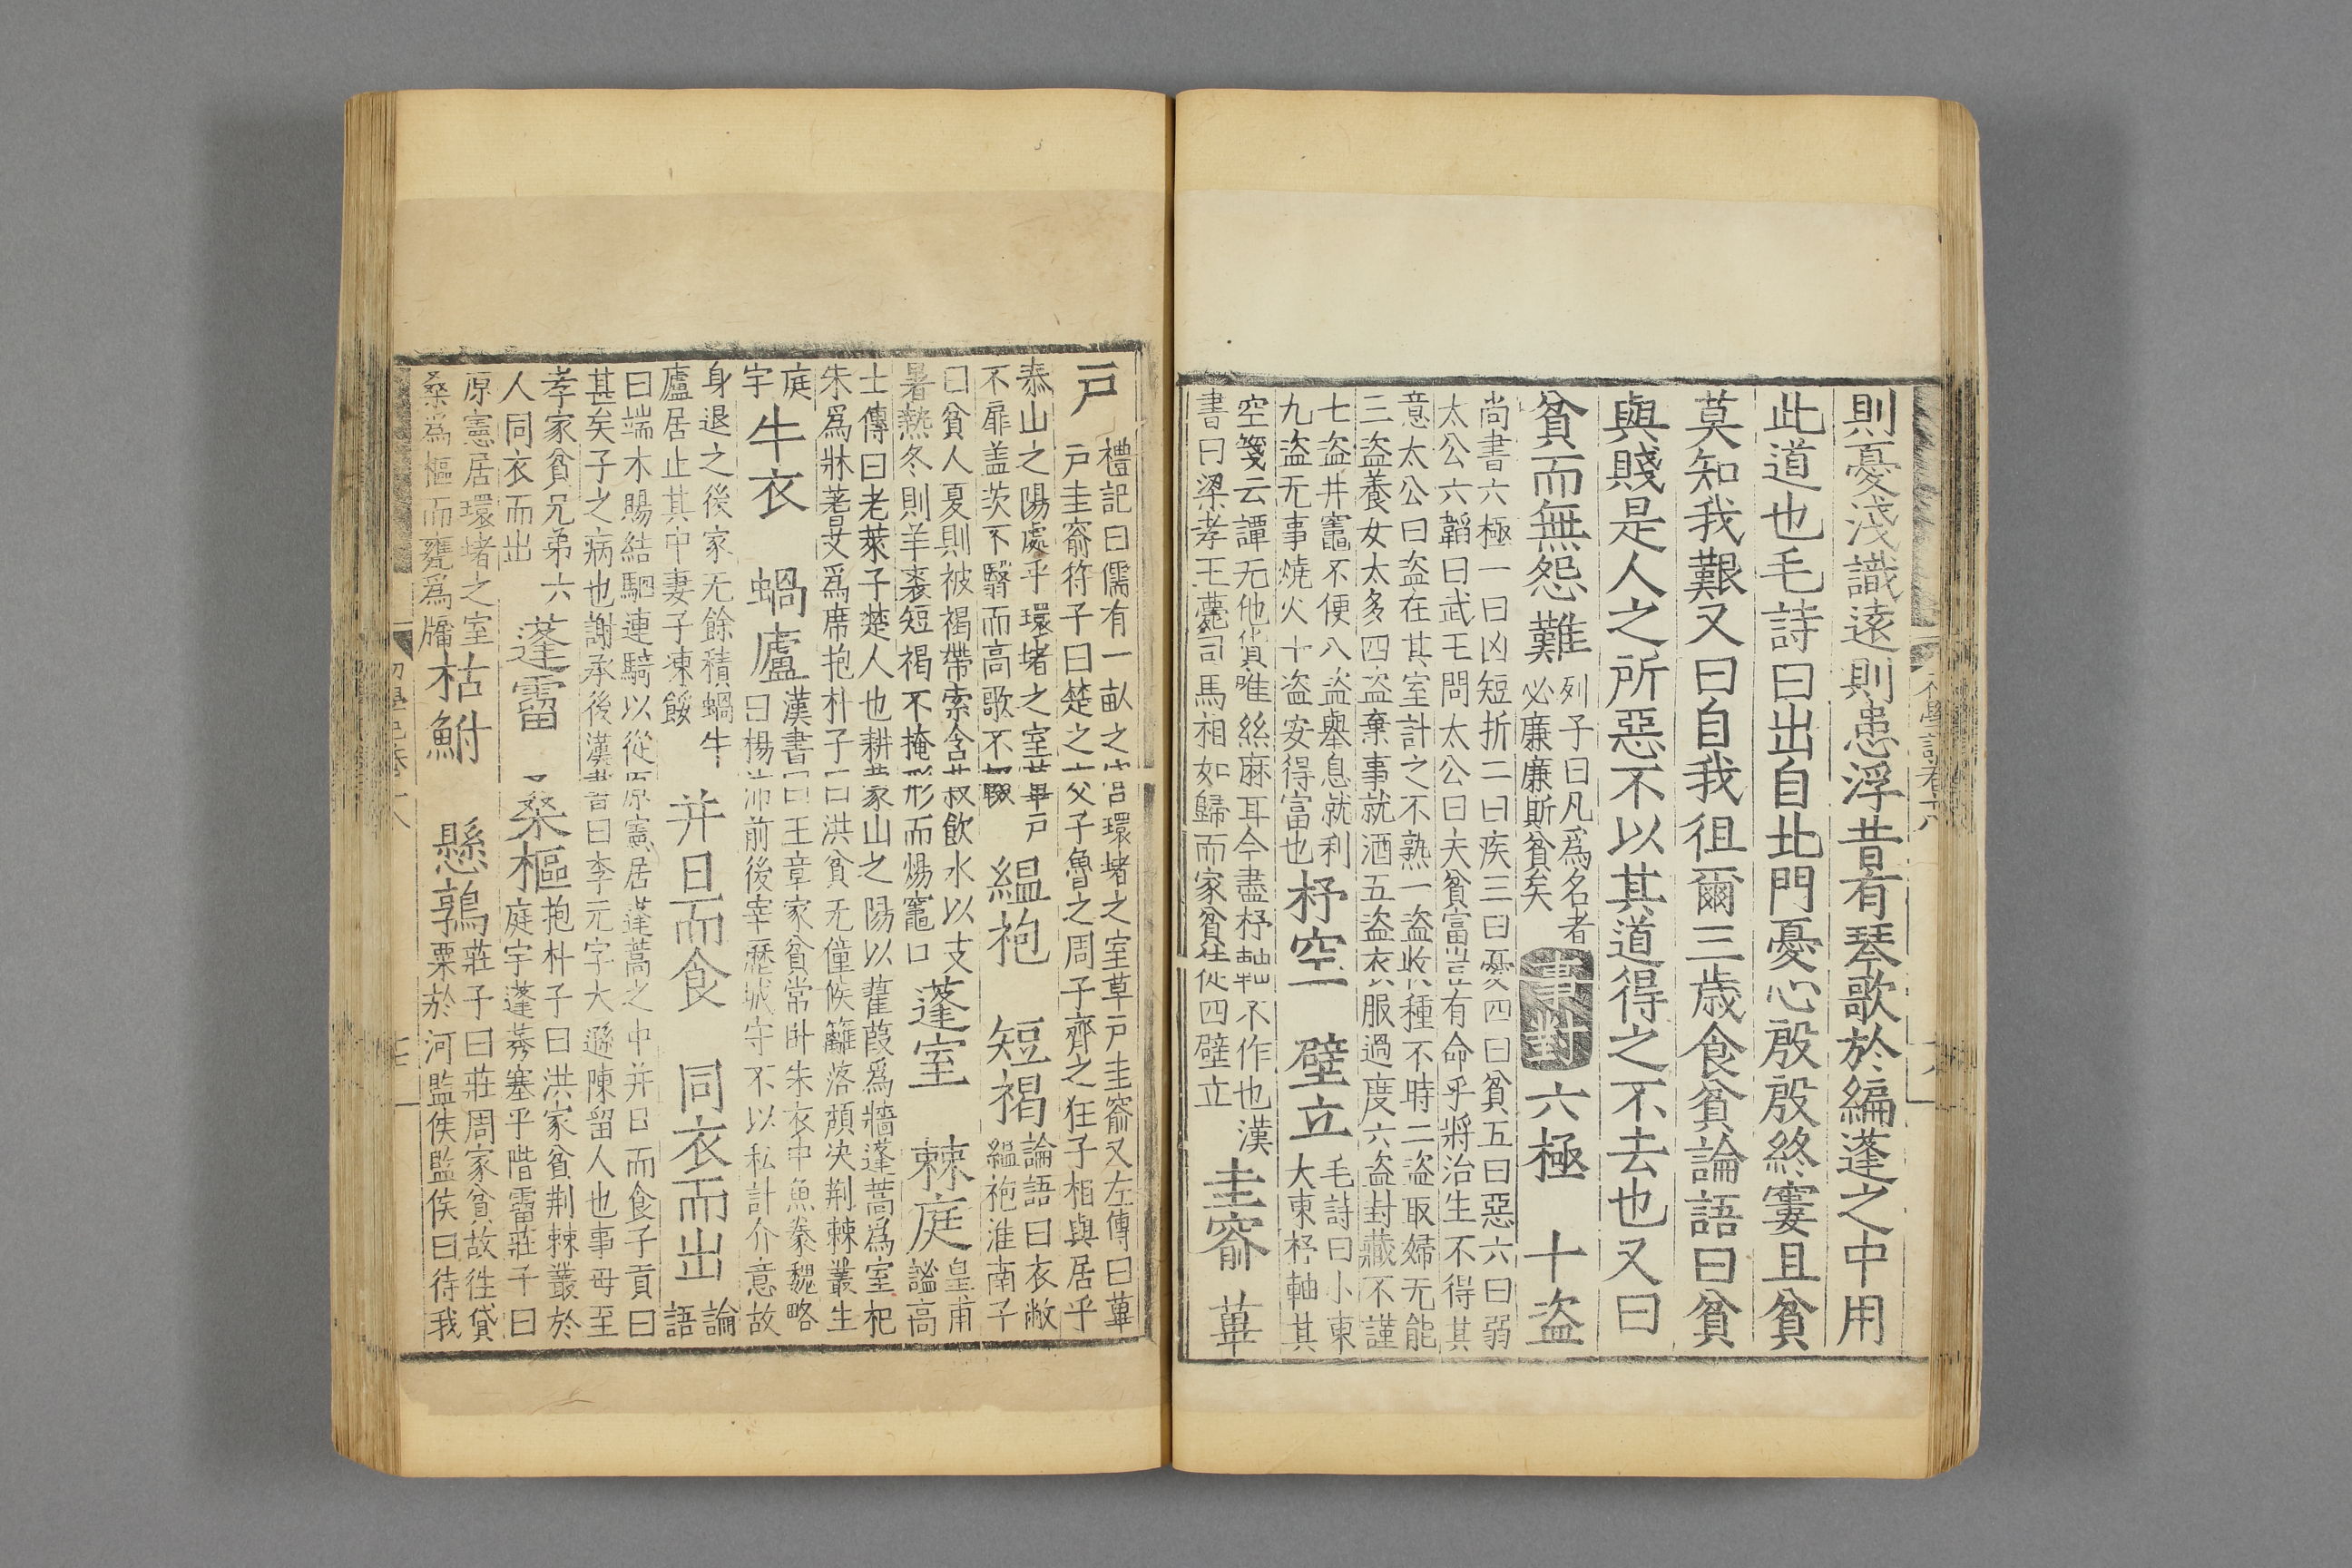 則憂淺識遠則患浮昔有琴歌於編蓬之中用
此道也毛詩曰出自北門憂心殷殷終窶且貧
莫知我艱又曰自我徂爾三歲食貧論語曰貧
與賤是人之所惡不以其道得之不去也又曰
貧而無怨難
列子曰凡爲名者
必廉廉斯貧矣
事對
六極 十盜
尚書六極一曰凶短折二曰疾三曰憂四曰貧五曰惡六曰弱
太公六韜曰武王問太公曰夫貧富豈有命乎將治生不得其
意太公曰盜在其室計之不熟一盜收種不時二盜取婦无能
三盜養女太多四盜棄事就酒五盜衣服過度六盜封藏不謹
七盜井竈不便八盜舉息就利
九盜无事燒火十盜安得富也
杼空 壁立
毛詩曰小東
大東杼軸其
空箋云譚无他貨唯絲麻耳今盡杼軸不作也漢
書曰梁孝王薨司馬相如歸而家貧徒四壁立
圭窬 蓽
初學記卷十八
戶
禮記曰儒有一畝之宮環堵之室蓽戶圭窬又左傳曰蓽
戶圭窬符子曰楚之父子魯之周子齊之狂子相與居乎
泰山之陽處乎環堵之室蓽戶
不扉盖茨不翳而高歌不輟
縕袍 短褐
論語曰衣敝
縕袍淮南子
曰貧人夏則被褐帶索含菽飲水以支
暑熱冬則羊裘短褐不掩形而煬竈口
蓬室 棘庭
皇甫
謐高
士傳曰老萊子楚人也耕蒙山之陽以雚葭爲牆蓬蒿爲室杞
朱爲牀蓍艾爲席抱朴子曰洪貧无僮候籬落頹决荆棘叢生
庭
宇
牛衣 蝸廬
漢書曰王章家貧常卧朱衣中魚豢魏略
曰楊沛前後宰歷城守不以私計介意故
身退之後家无餘積蝸牛
廬居止其中妻子凍餒
并日而食 同衣而出
論
語
曰端木賜結駟連騎以從原憲居蓬蒿之中并日而食子貢曰
甚矣子之病也謝承後漢書曰李元字大遜陳留人也事母至
孝家貧兄弟六
人同衣而出
蓬霤 桑樞
抱朴子曰洪家貧荆棘叢於
庭宇蓬莠塞乎階霤莊子曰
原憲居環堵之室
桑爲樞而甕爲牖
枯鮒 懸鶉
莊子曰莊周家貧故往貸
粟於河監侯監侯曰待我
初學記卷十八